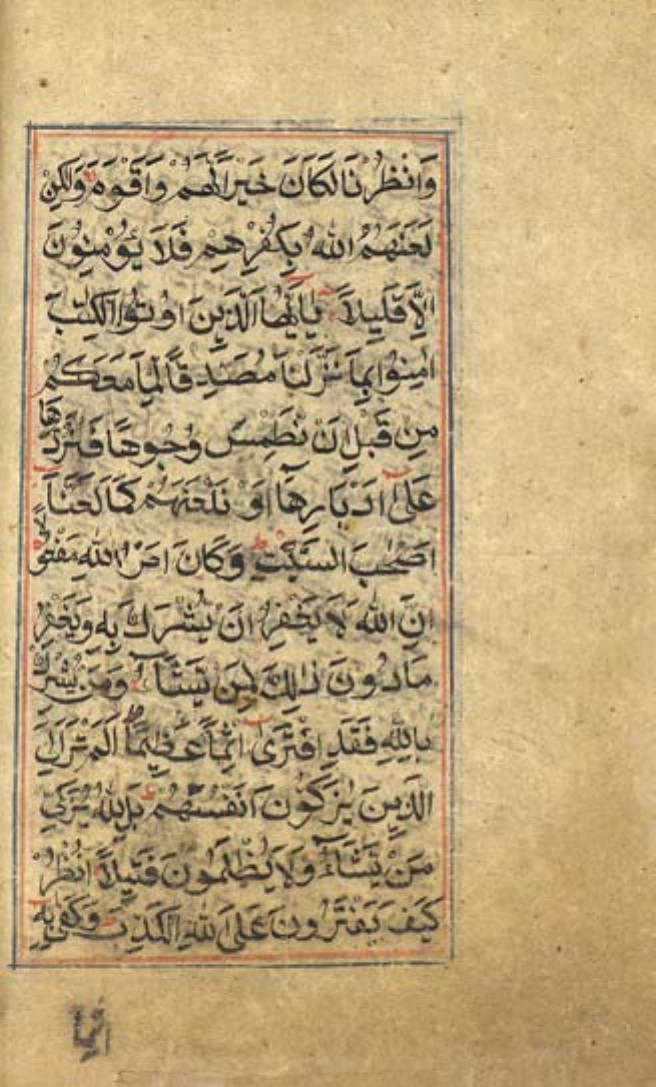 وَانْظُرْنَا لَكَانَ خَيْرًا لَهُمْ وَاَقْوَمَ وَلٰكِنْ
لَعَنَهُمُ اللّٰهُ بِكُفْرِهِمْ فَلَا يُؤْمِنُونَ
اِلَّا قَلِيلًا يٰاَيُّهَا الَّذِينَ اُوتُوا الْكِتٰبَ
اٰمِنُوا بِمَا نَزَّلْنَا مُصَدِّقًا لِمَا مَعَكُمْ
مِنْ قَبْلِ اَنْ نَطْمِسَ وُجُوهًا فَنَرُدَّهَا
عَلٰى اَدْبَارِهَا اَوْ نَلْعَنَهُمْ كَمَا لَعَنَّا
اَصْحٰبَ السَّبْتِ وَكَانَ اَمْرُ اللّٰهِ مَفْعُولًا
اِنَّ اللّٰهَ لَا يَغْفِرُ اَنْ يُشْرَكَ بِهِ وَيَغْفِرُ
مَا دُونَ ذٰلِكَ لِمَنْ يَشَاءُ وَمَنْ يُشْرِكْ
بِاللّٰهِ فَقَدِ افْتَرٰى اِثْمًا عَظِيمًا اَلَمْ تَرَ اِلَى
الَّذِينَ يُزَكُّونَ اَنْفُسَهُمْ بَلِ اللّٰهُ يُزَكِّي
مَنْ يَشَاءُ وَلَا يُظْلَمُونَ فَتِيلًا اُنْظُرْ
كَيْفَ يَفْتَرُونَ عَلَى اللّٰهِ الْكَذِبَ وَكَفٰى بِهِ
اِثْمًا